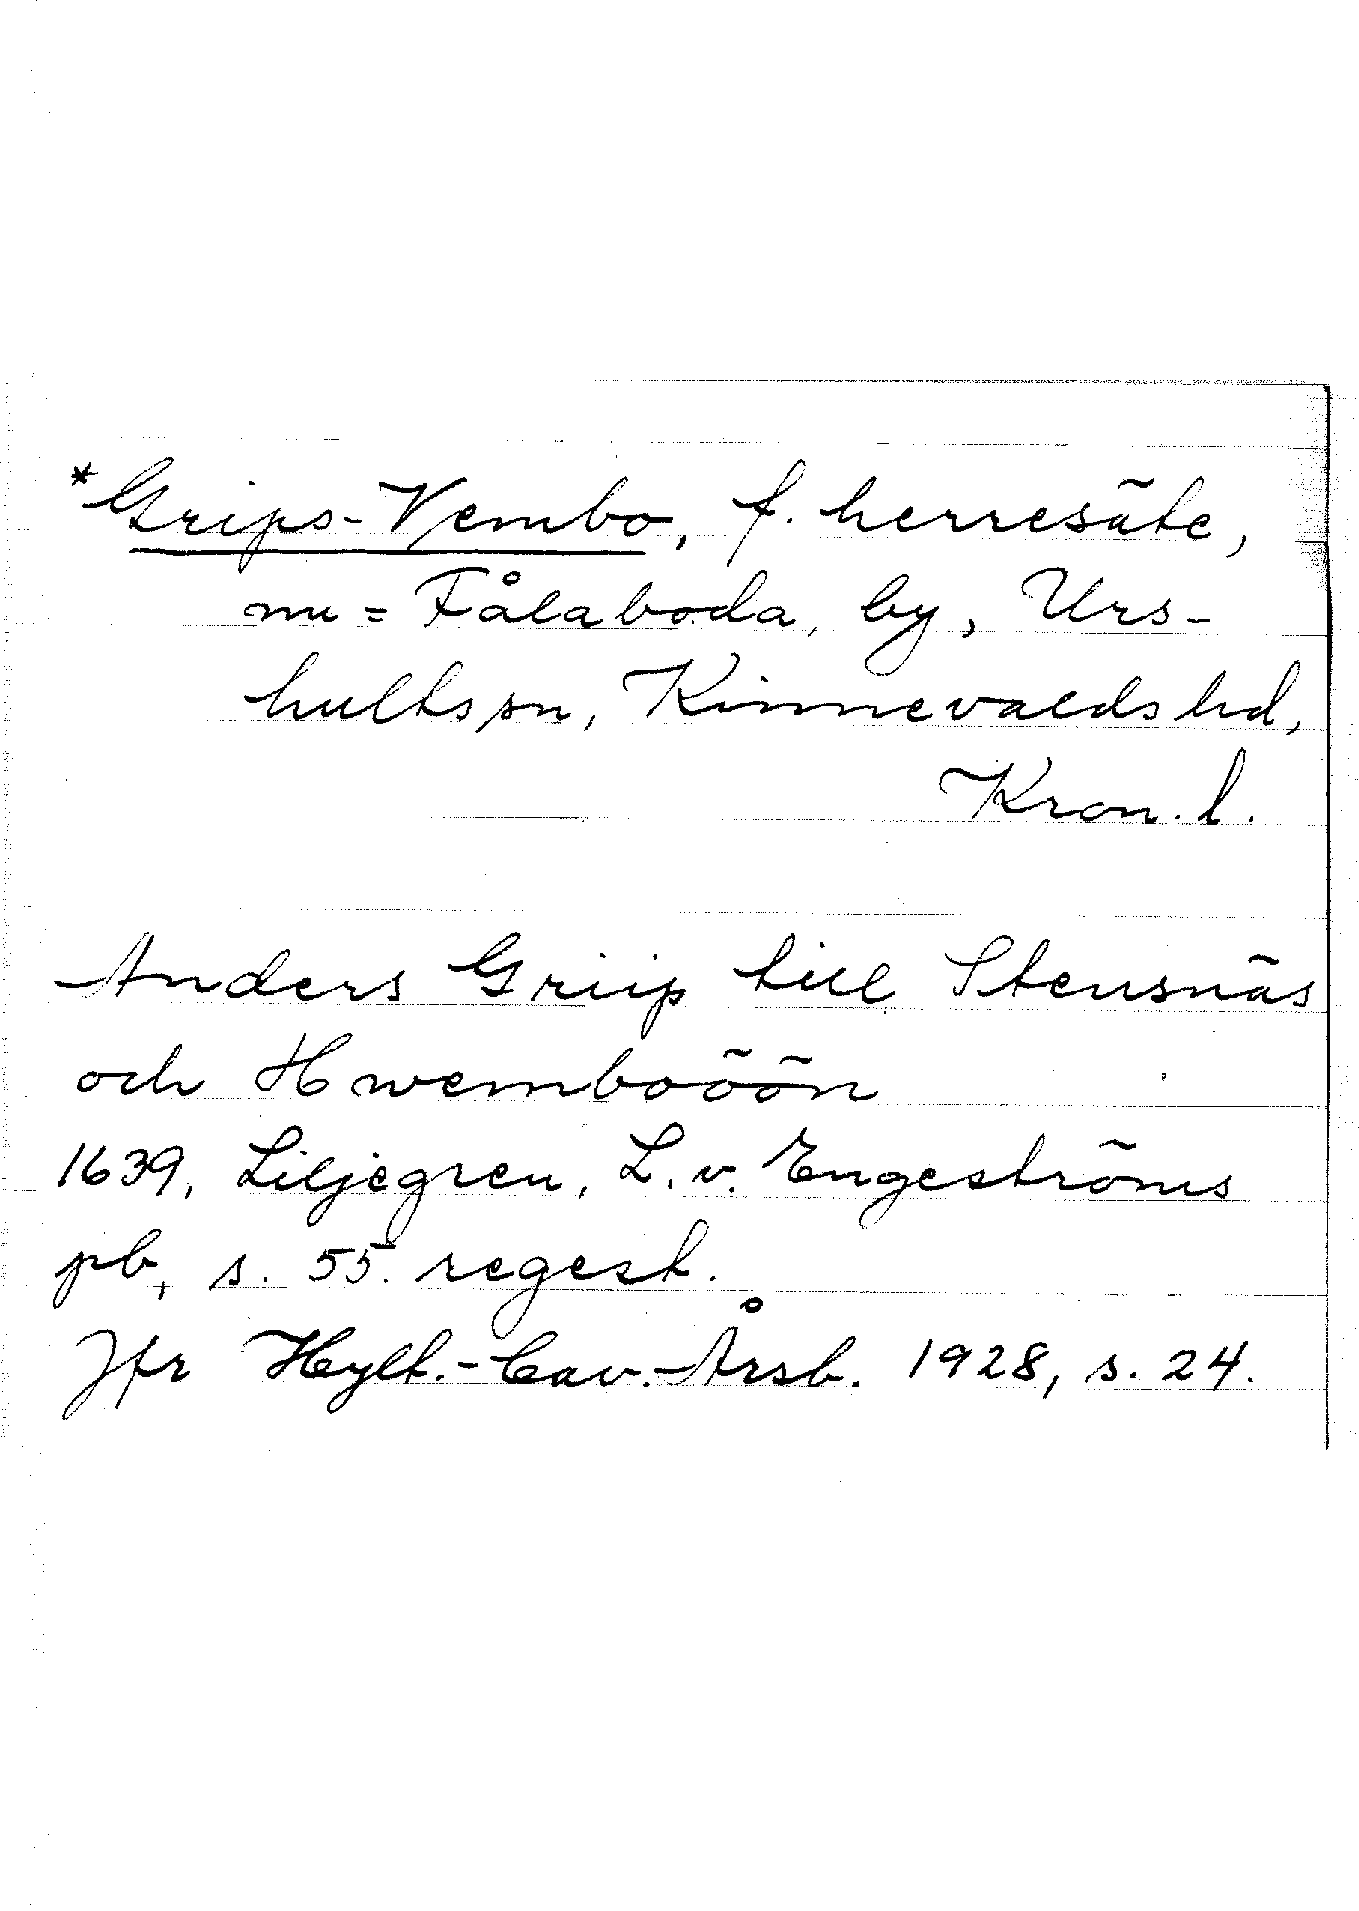 *Grips-Vembo, f. herresäte,
nu = Fålaboda, by, Urs-
hults sn, Kinnevalds hd,
Kron. l.
Anders Griip till Stensnäs
och Hwemboöön
1639, Liljegren, L. v. Engeströms
pb, s. 55. regest.
Jfr Hylt.-Cav.-Årsb. 1928, s. 24.